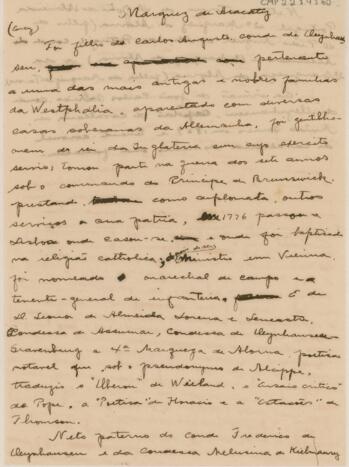 Marquez de Aracaty
Foi filho de Carlos Augusto, conde de Oeynhau
sen, pertencente
a uma das mais antigas e nobres familias
da Westphalia, aparentado com diversas
casas soberanas da Allemanha, foi gentilho-
mem do rei da Inglaterra em cujo exercito
serviu; tomou parte na guerra dos sete annos
sob o commando do Principe de Brunswick.
prestando como diplomata, outros
serviços a sua patria, 1776 passou a
Lisboa onde casou-se, e onde foi baptisado
na religião catholica; Ministro em Vienna,
foi nomeado marechal de campo e
tenente-general de infantaria. E de
D. Leonor de Almeida Lorena e Lencastre,
Condessa de Assumar, Condessa de Oeynhausen
Gravenburg e 4ª Marqueza de Alorna, poetisa
notavel que, sob o pseudonymo de Alcippe,
traduziu o "Oberon" de Wieland, o "Ensaio critico"
de Pope, a "Poetica" de Horacio e a "Estações" de
Thomson.
Neto paterno do conde Frederico de
Oeynhausen e da Condessa Melusina de